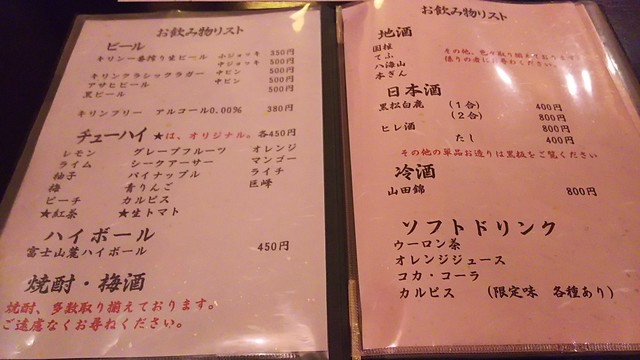 お飲み物リスト
ビール
キリン一番搾り生ビール 小ジョッキ 350円
中ジョッキ 500円
キリンクラシックラガー 中ビン 500円
アサヒビール 中ビン 500円
黒ビール 500円
キリンフリー アルコール0.00% 380円
チューハイ ★は、オリジナル。各450円
レモン グレープフルーツ オレンジ
ライム シークアーサー マンゴー
柚子 パイナップル ライチ
梅 青りんご 巨峰
ピーチ カルピス
★紅茶 ★生トマト
ハイボール
富士山麓ハイボール 450円
焼酎・梅酒
焼酎、多数取り揃えております。
ご遠慮なくお尋ねください。
お飲み物リスト
地酒
国権
てふ
八海山
本ぎん
その他、色々取り揃えております
係りの者にお尋ねください。
日本酒
黒松白鹿 (1合) 400円
(2合) 800円
ヒレ酒 800円
たし 400円
その他の単品お造りは黒板をご覧ください
冷酒
山田錦 800円
ソフトドリンク
ウーロン茶
オレンジジュース
コカ・コーラ
カルピス (限定味 各種あり)